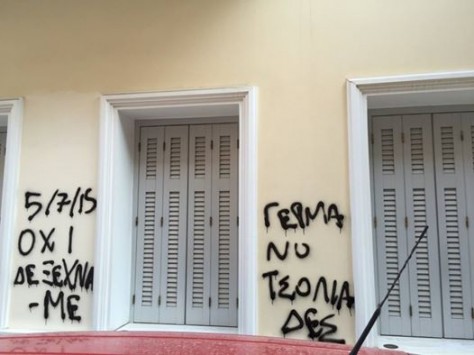 5/7/15
ΟΧΙ
ΔΕ ΞΕΧΝΑ
-ΜΕ
ΓΕΡΜΑ
ΝΟ
ΤΣΟΛΙΑ
ΔΕΣ